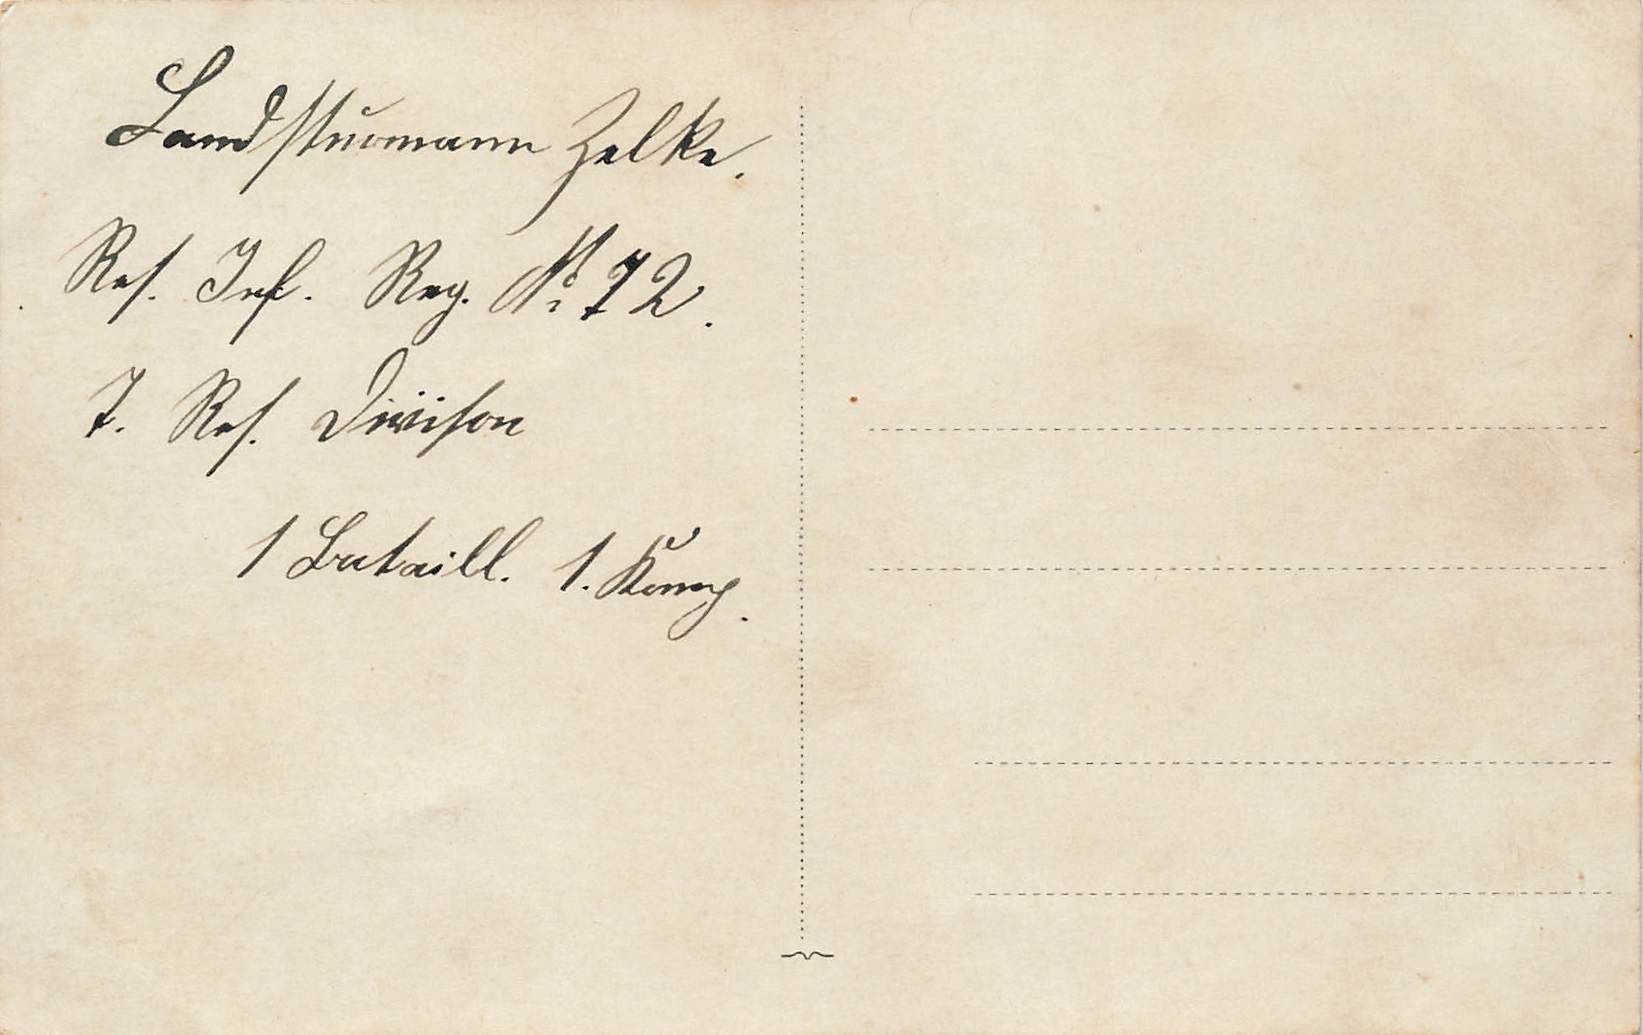 Landsturmann Zelke.
Res. Inf. Reg. № 72.
7. Res. Divison
1 Bataill. 1. Komp.